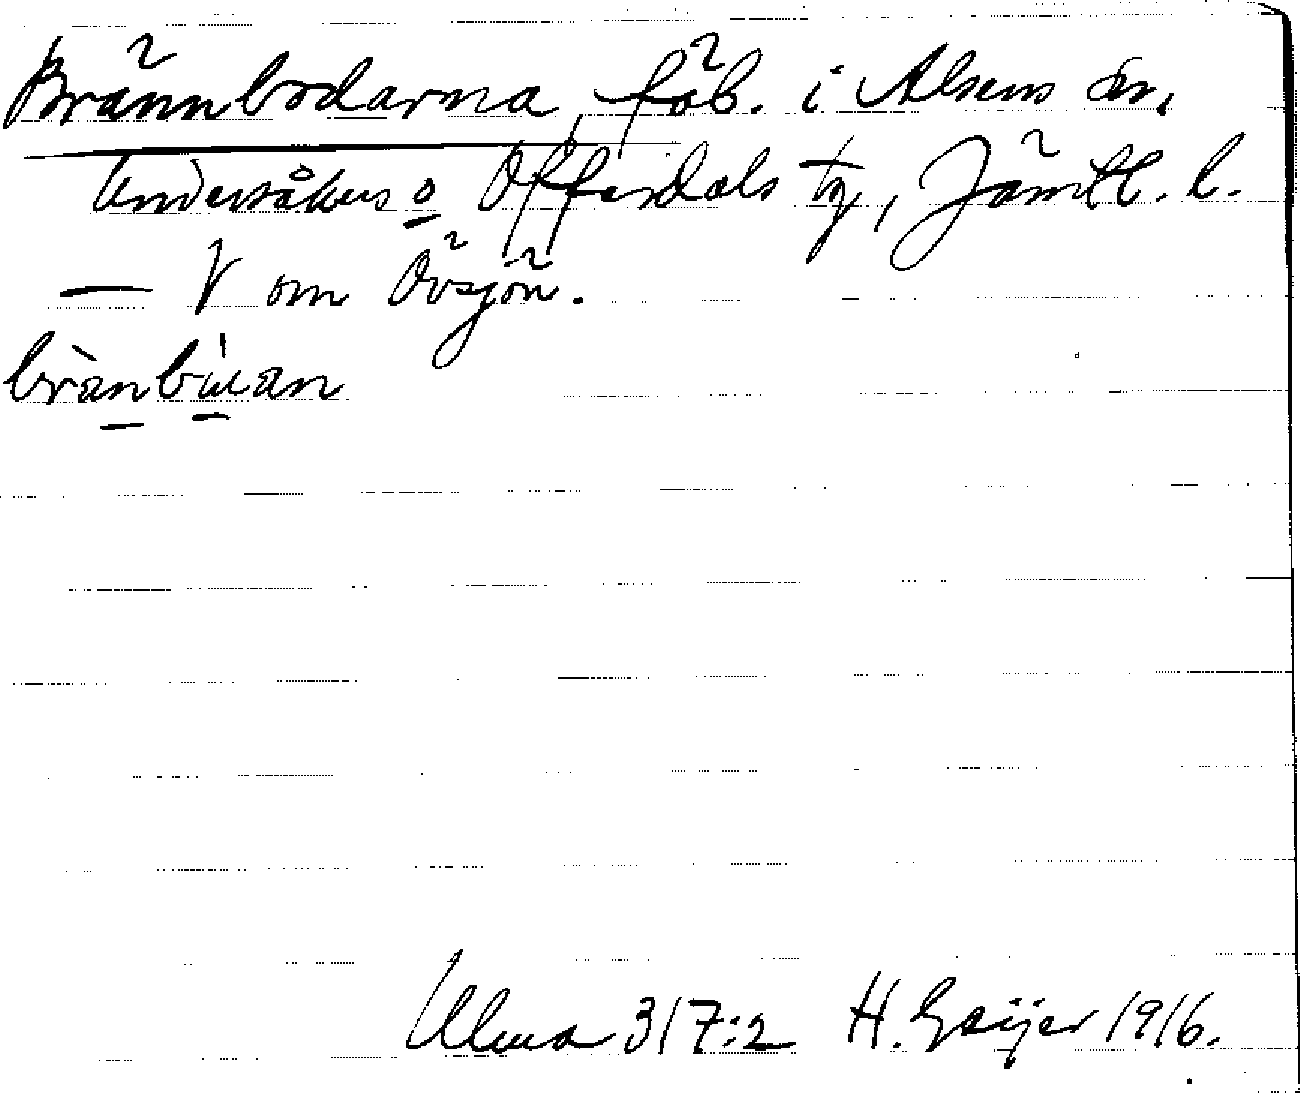 Brännbodarna, fäb. i Alsens sn,
Undersåkers o Offerdals tg, Jämtl. l.
— V om Övsjön.
H. Geijer 1916.